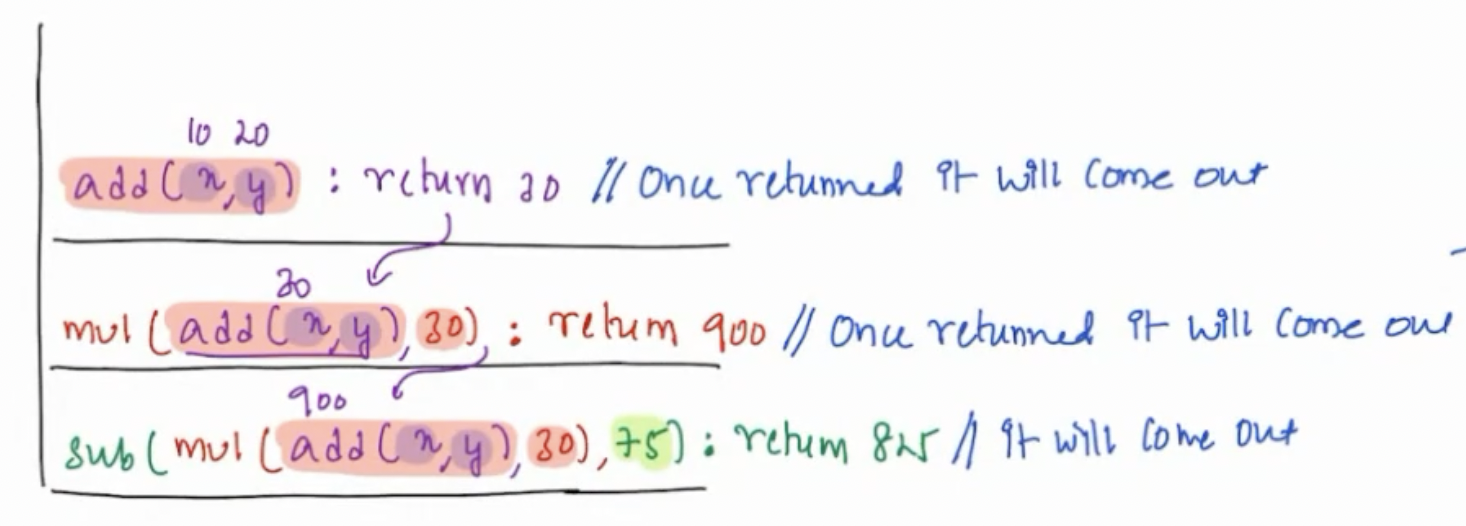 10 20
add(x,y) : return 30 // Once returned it will come out
30
mul(add(x,y),30) : return 900 // Once returned it will come out
900
sub(mul(add(x,y),30),75) : return 825 // it will come out